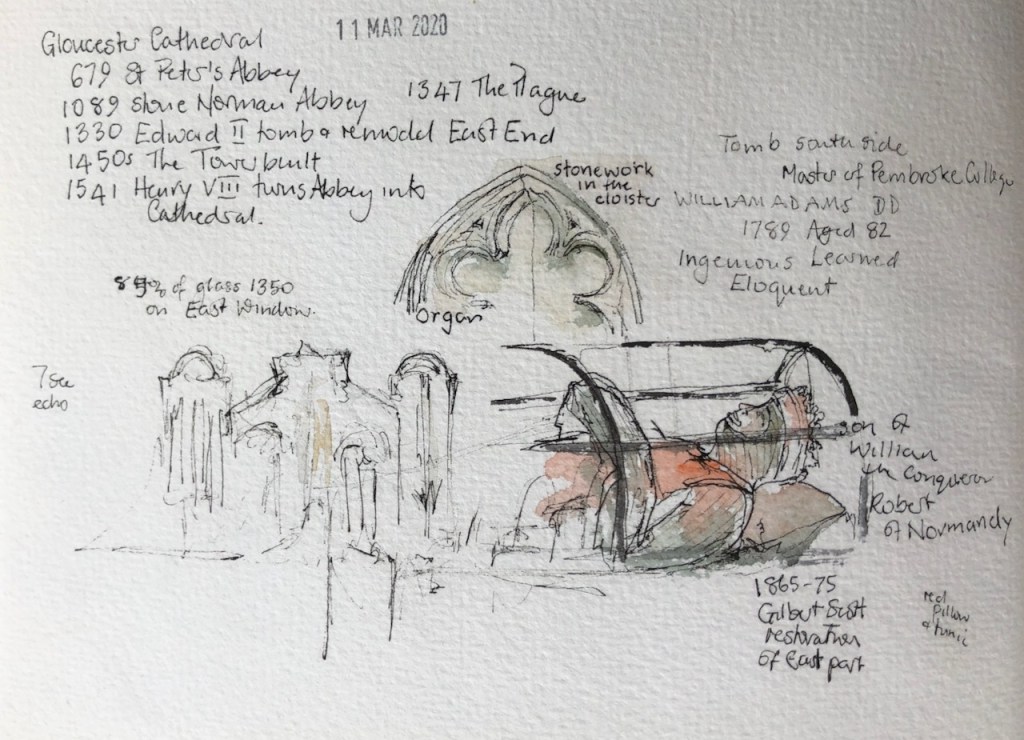 11 MAR 2020
Gloucester Cathedral
679 St Peter's Abbey
1089 stone Norman Abbey
1347 The Plague
1330 Edward II tomb & remodel East End
1450s The Tower built
1541 Henry VIII turns Abbey into
Cathedral.
Tomb south side
Master of Pembroke College
WILLIAM ADAMS DD
1789 Aged 82
Ingenious Learned
Eloquent
stonework
in the
cloister
of glass 1350
on East Window.
Organ
7 sec
echo
son of
William
the Conqueror
Robert
of Normandy
1865-75
Gilbert Scott
restoration
of East part
red
pillow
& tunic